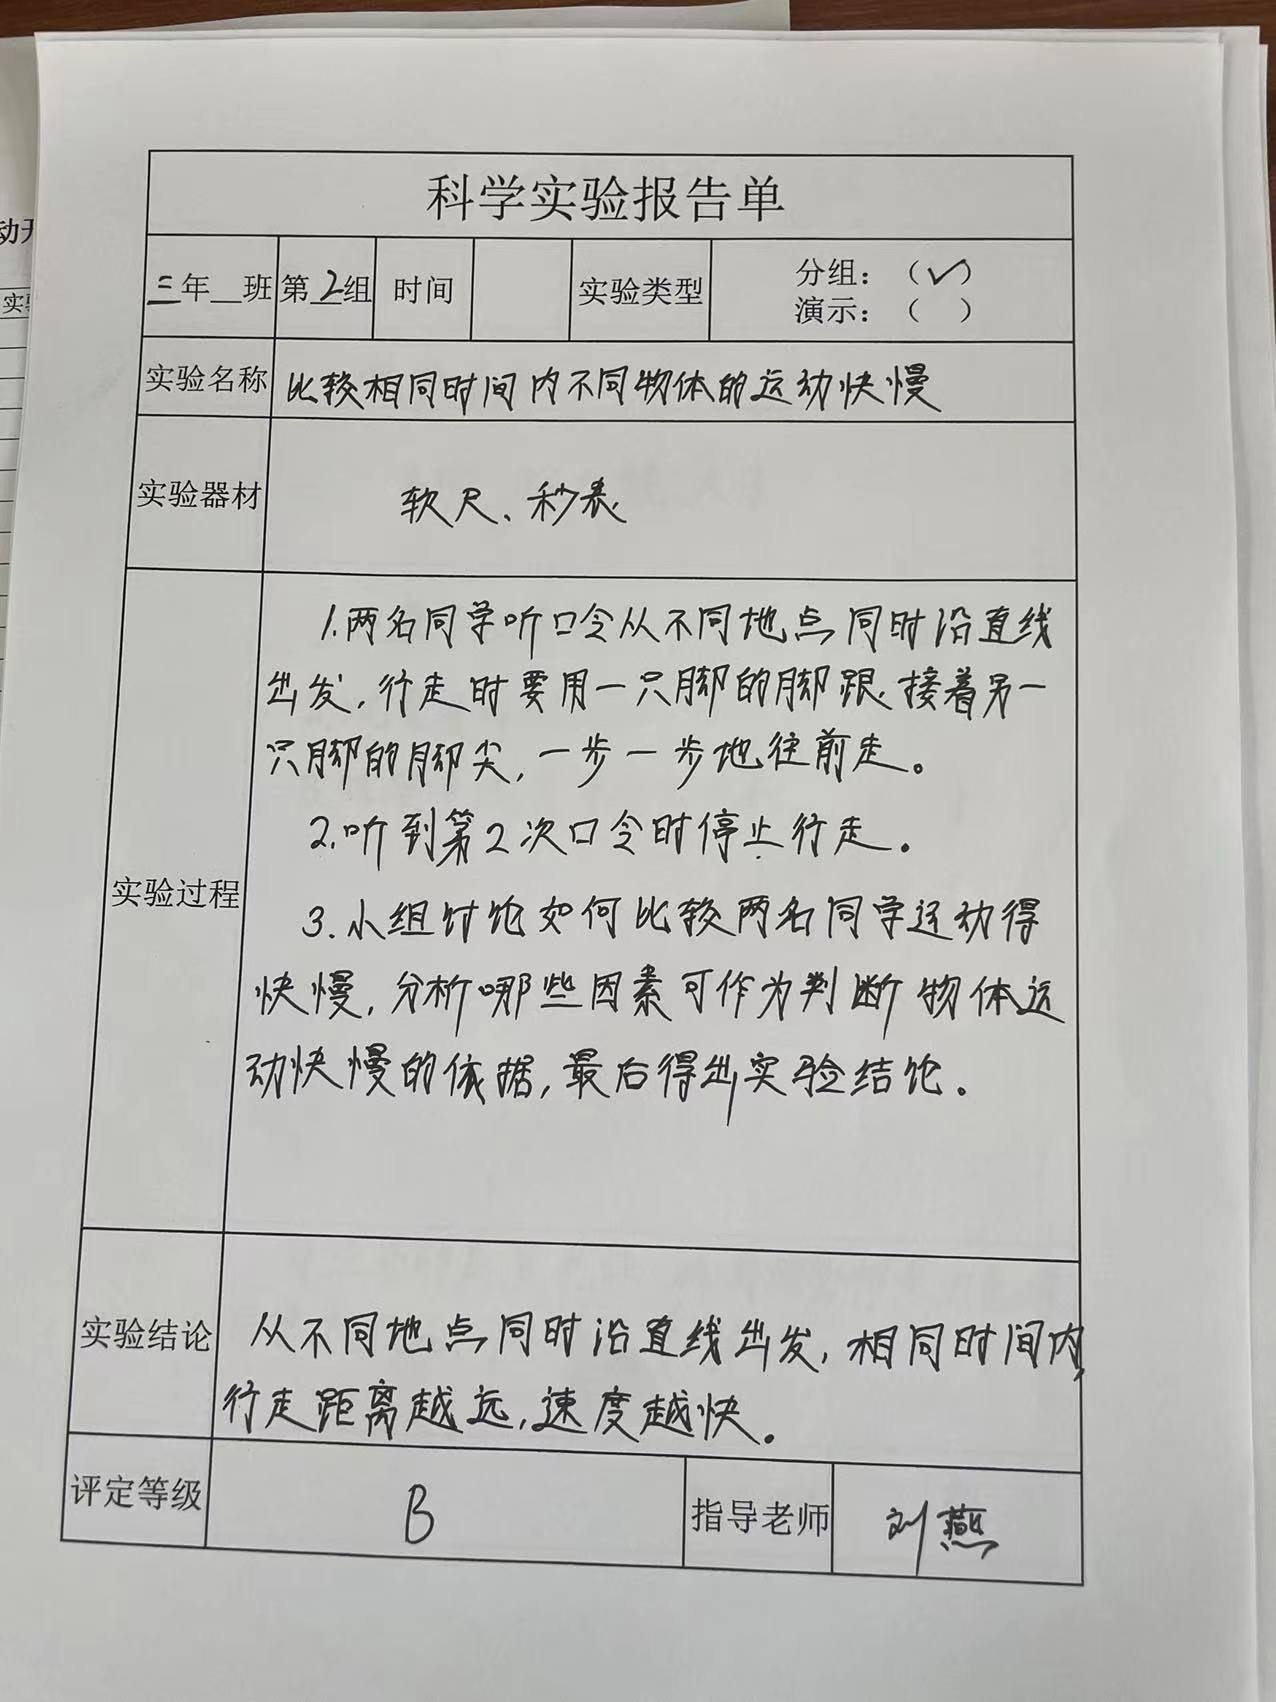 科学实验报告单
三年__班 第2组 时间 实验类型 分组：（✓）
演示：（ ）
实验名称 比较相同时间内不同物体的运动快慢
实验器材 软尺、秒表
实验过程
1.两名同学听口令从不同地点同时沿直线
出发，行走时要用一只脚的脚跟接着另一
只脚的脚尖，一步一步地往前走。
2.听到第2次口令时停止行走。
3.小组讨论如何比较两名同学运动得
快慢，分析哪些因素可作为判断物体运
动快慢的依据，最后得出实验结论。
实验结论
从不同地点同时沿直线出发，相同时间内，
行走距离越远，速度越快。
评定等级 B 指导老师 刘燕